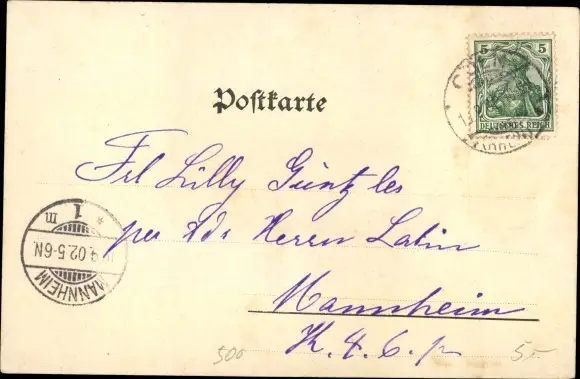 5 5
DEUTSCHES REICH
Postkarte
Frl Lilly Güntzles
per Adr Herrn Latin
Mannheim
K. 4. 6. p
MANNHEIM
02.5-6N.
1
m
500
5.-